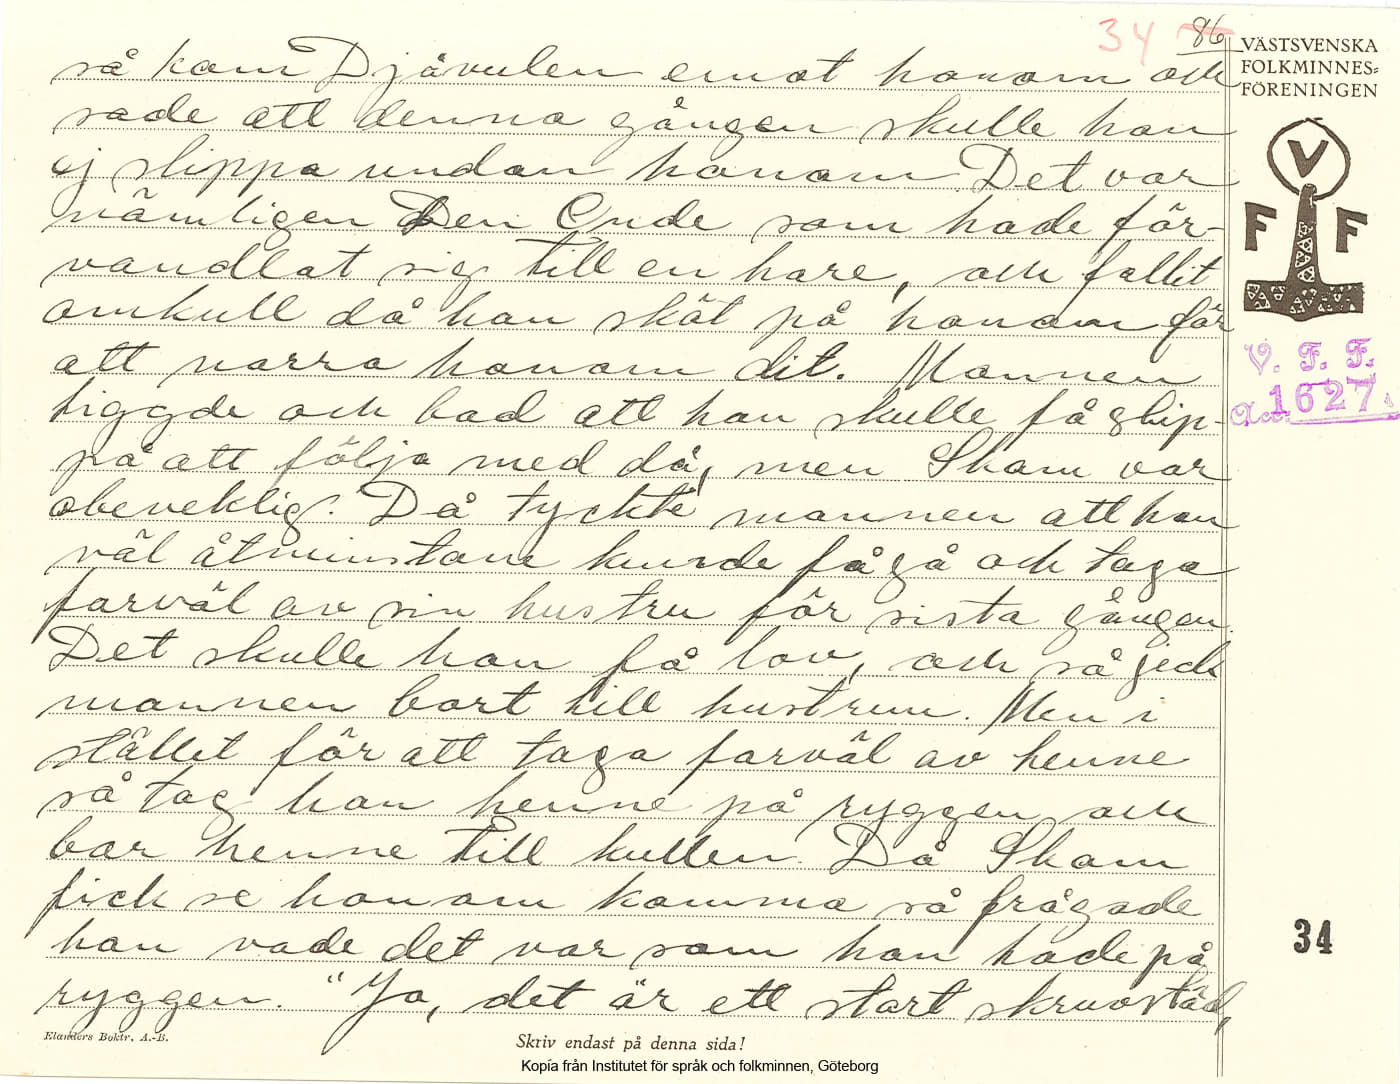 34 86
VÄSTSVENSKA
FOLKMINNES=
FÖRENINGEN
så kom Djävulen emot honom och
sade att denna gången skulle han
ej slippa undan honom. Det var
nämligen Den Onde som hade för-
vandlat sig till en hare, och fallit
omkull då han sköt på honom för
att narra honom dit. Mannen
tiggde och bad att han skulle få slip-
pa att följa med då, men Skam var
obeveklig. Då tyckte mannen att han
väl åtminstone kunde få gå och taga
farväl av sin hustru för sista gången.
Det skulle han få lov, och så gick
mannen bort till hustrun. Men i
stället för att taga farväl av henne
så tog han henne på ryggen och
bar henne till kullen. Då Skam
fick se honom komma så frågade
han vade det var som han hade på
ryggen. "Ja, det är ett stort skruvstäd,
V
F F
V. F. F.
Acc. 1627
34
Elanders Boktr. A.-B.
Skriv endast på denna sida!
Kopia från Institutet för språk och folkminnen, Göteborg